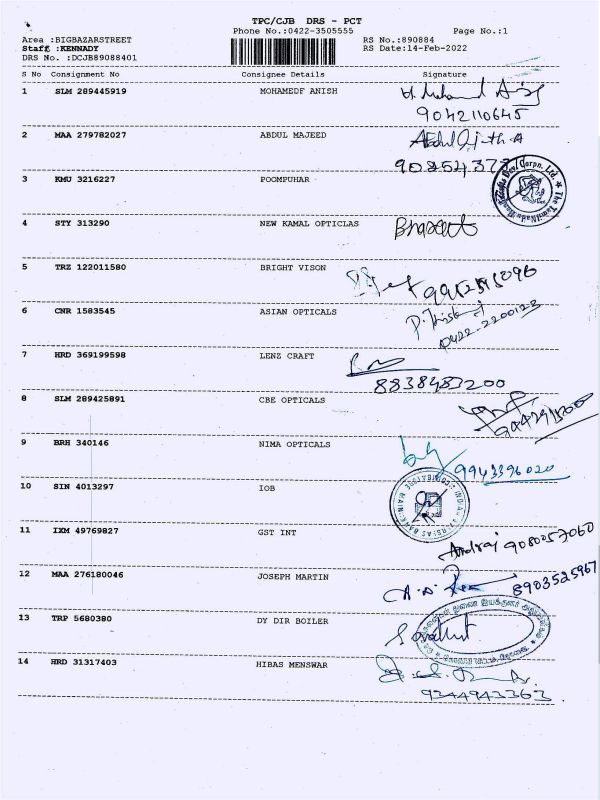 TPC/CJB DRS - PCT
Phone No.:0422-3505555 Page No.:1
Area :BIGBAZARSTREET RS No.:890884
Staff :KENNADY RS Date:14-Feb-2022
DRS No. :DCJB89088401
S No Consignment No Consignee Details Signature
1 SLM 289445919 MOHAMEDF ANISH
9042110645
2 MAA 279782027 ABDUL MAJEED
3 KMU 3216227 POOMPUHAR
4 STY 313290 NEW KAMAL OPTICLAS
5 TRZ 122011580 BRIGHT VISON
6 CNR 1583545 ASIAN OPTICALS
0422-2200123
7 HRD 369199598 LENZ CRAFT
8838483200
8 SLM 289425891 CBE OPTICALS
9 BRH 340146 NIMA OPTICALS
9943396020
10 SIN 4013297 IOB
11 IXM 49769827 GST INT
9080057060
12 MAA 276180046 JOSEPH MARTIN
8903525967
13 TRP 5680380 DY DIR BOILER
14 HRD 31317403 HIBAS MENSWAR
9344943363